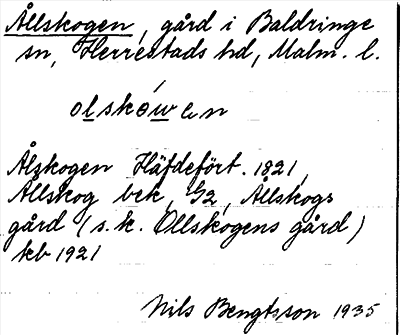 Ållskogen, gård i Baldringe
sn, Herrestads hd, Malm. l.
olskówen
Ålzkogen Häfdefört. 1821,
Allskog bek, G2, Ållskogs
gård (s.k. Ollskogens gård)
kb 1921
Nils Bengtsson 1935